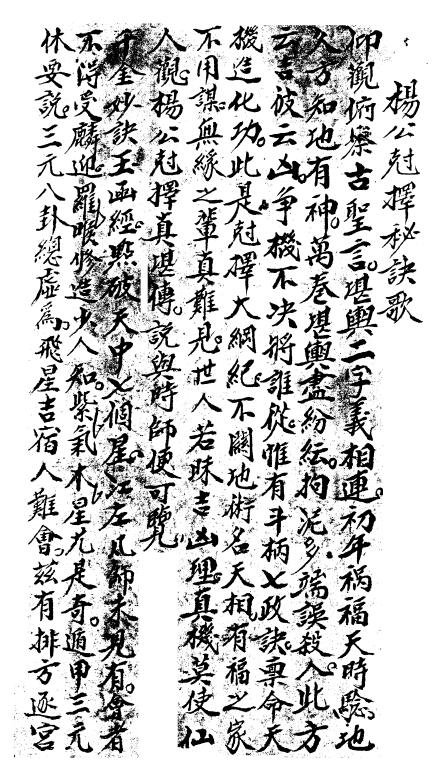 楊公尅擇秘訣歌
仰觀俯察古聖言。堪輿二字義相連。初年禍福天時驗。地
人方知地有神。萬卷堪輿盡紛紜。拘泥多端誤殺人。此方
云吉彼云凶。爭機不决將誰從。惟有斗柄七政訣。稟命天
機造化功。此是尅擇大綱紀。不關地術名天相。有福之家
不用謀。無緣之輩真難見。世人若昧吉凶理。真機莫使仙
人觀。楊公尅擇真堪傳。說與時師便可覽。
千金妙訣玉函經。點破天中七個星。江左凡師未見有。會者
不得受麟迎。羅睺修造少人知。紫氣木星尤是奇。遁甲三元
休要説。三元八卦總虛爲。飛星吉宿人難會。茲有排方逐宮